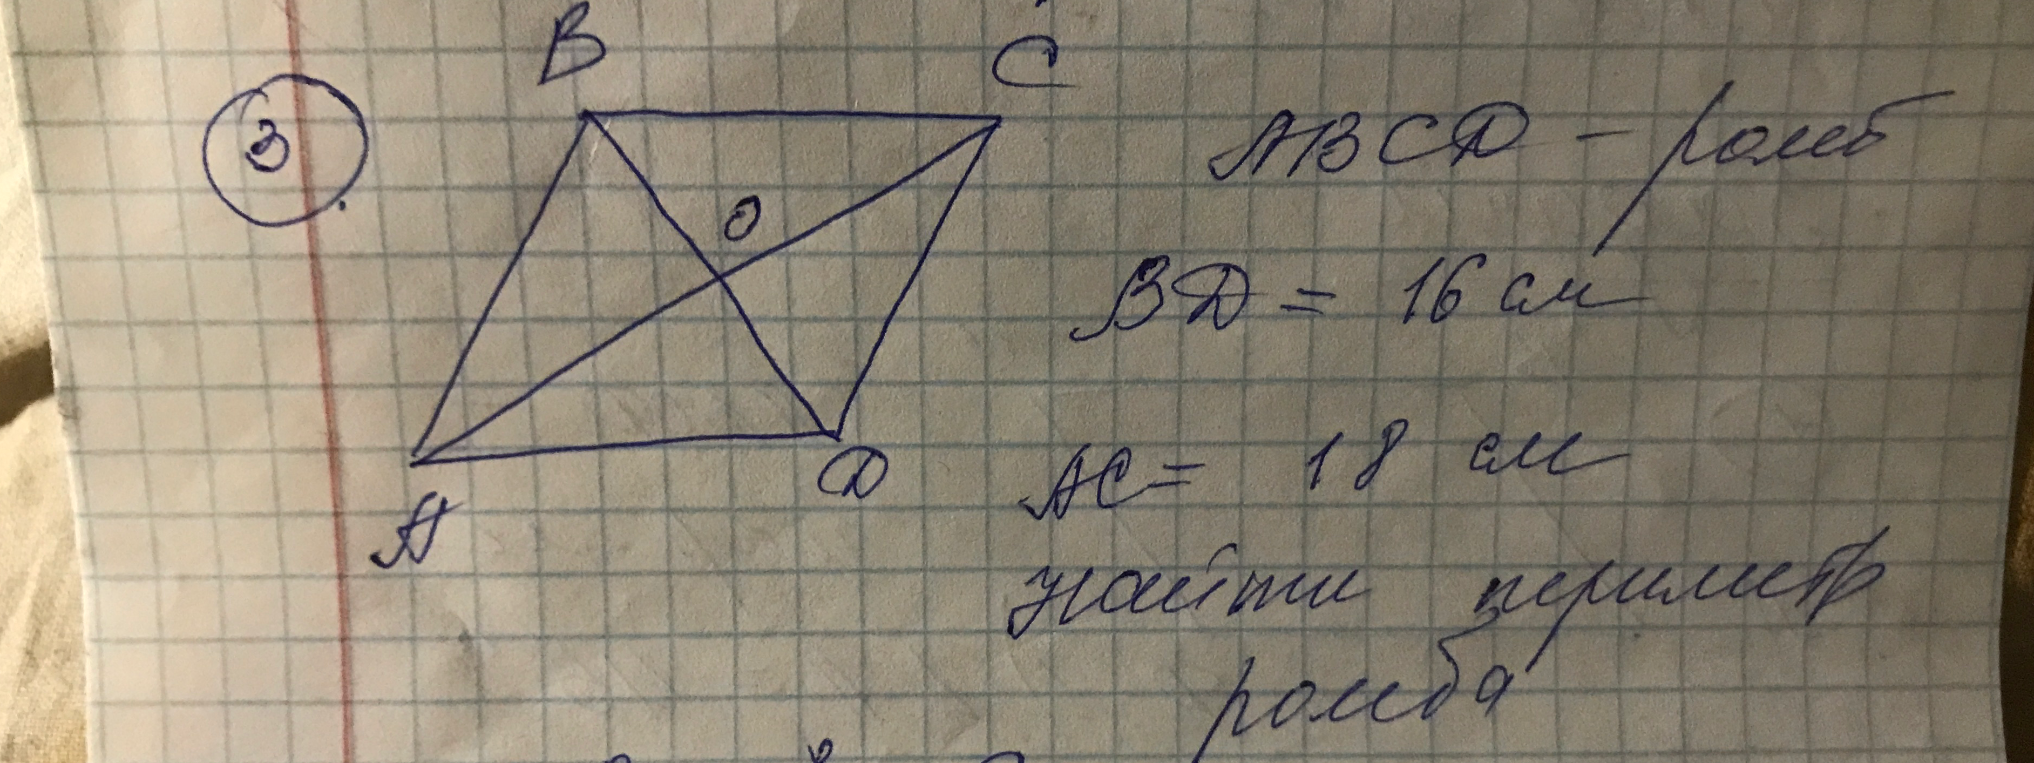 3.
B
C
O
A
D
ABCD - ромб
BD = 16 см
AC = 18 см
Найти периметр
ромба